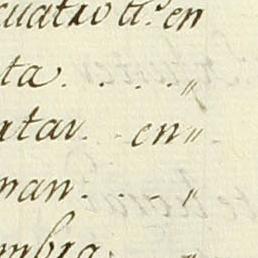 cuatro tt.ˢ en
ta. . . . "
atar. . en "
man. . . . "
mbra. "